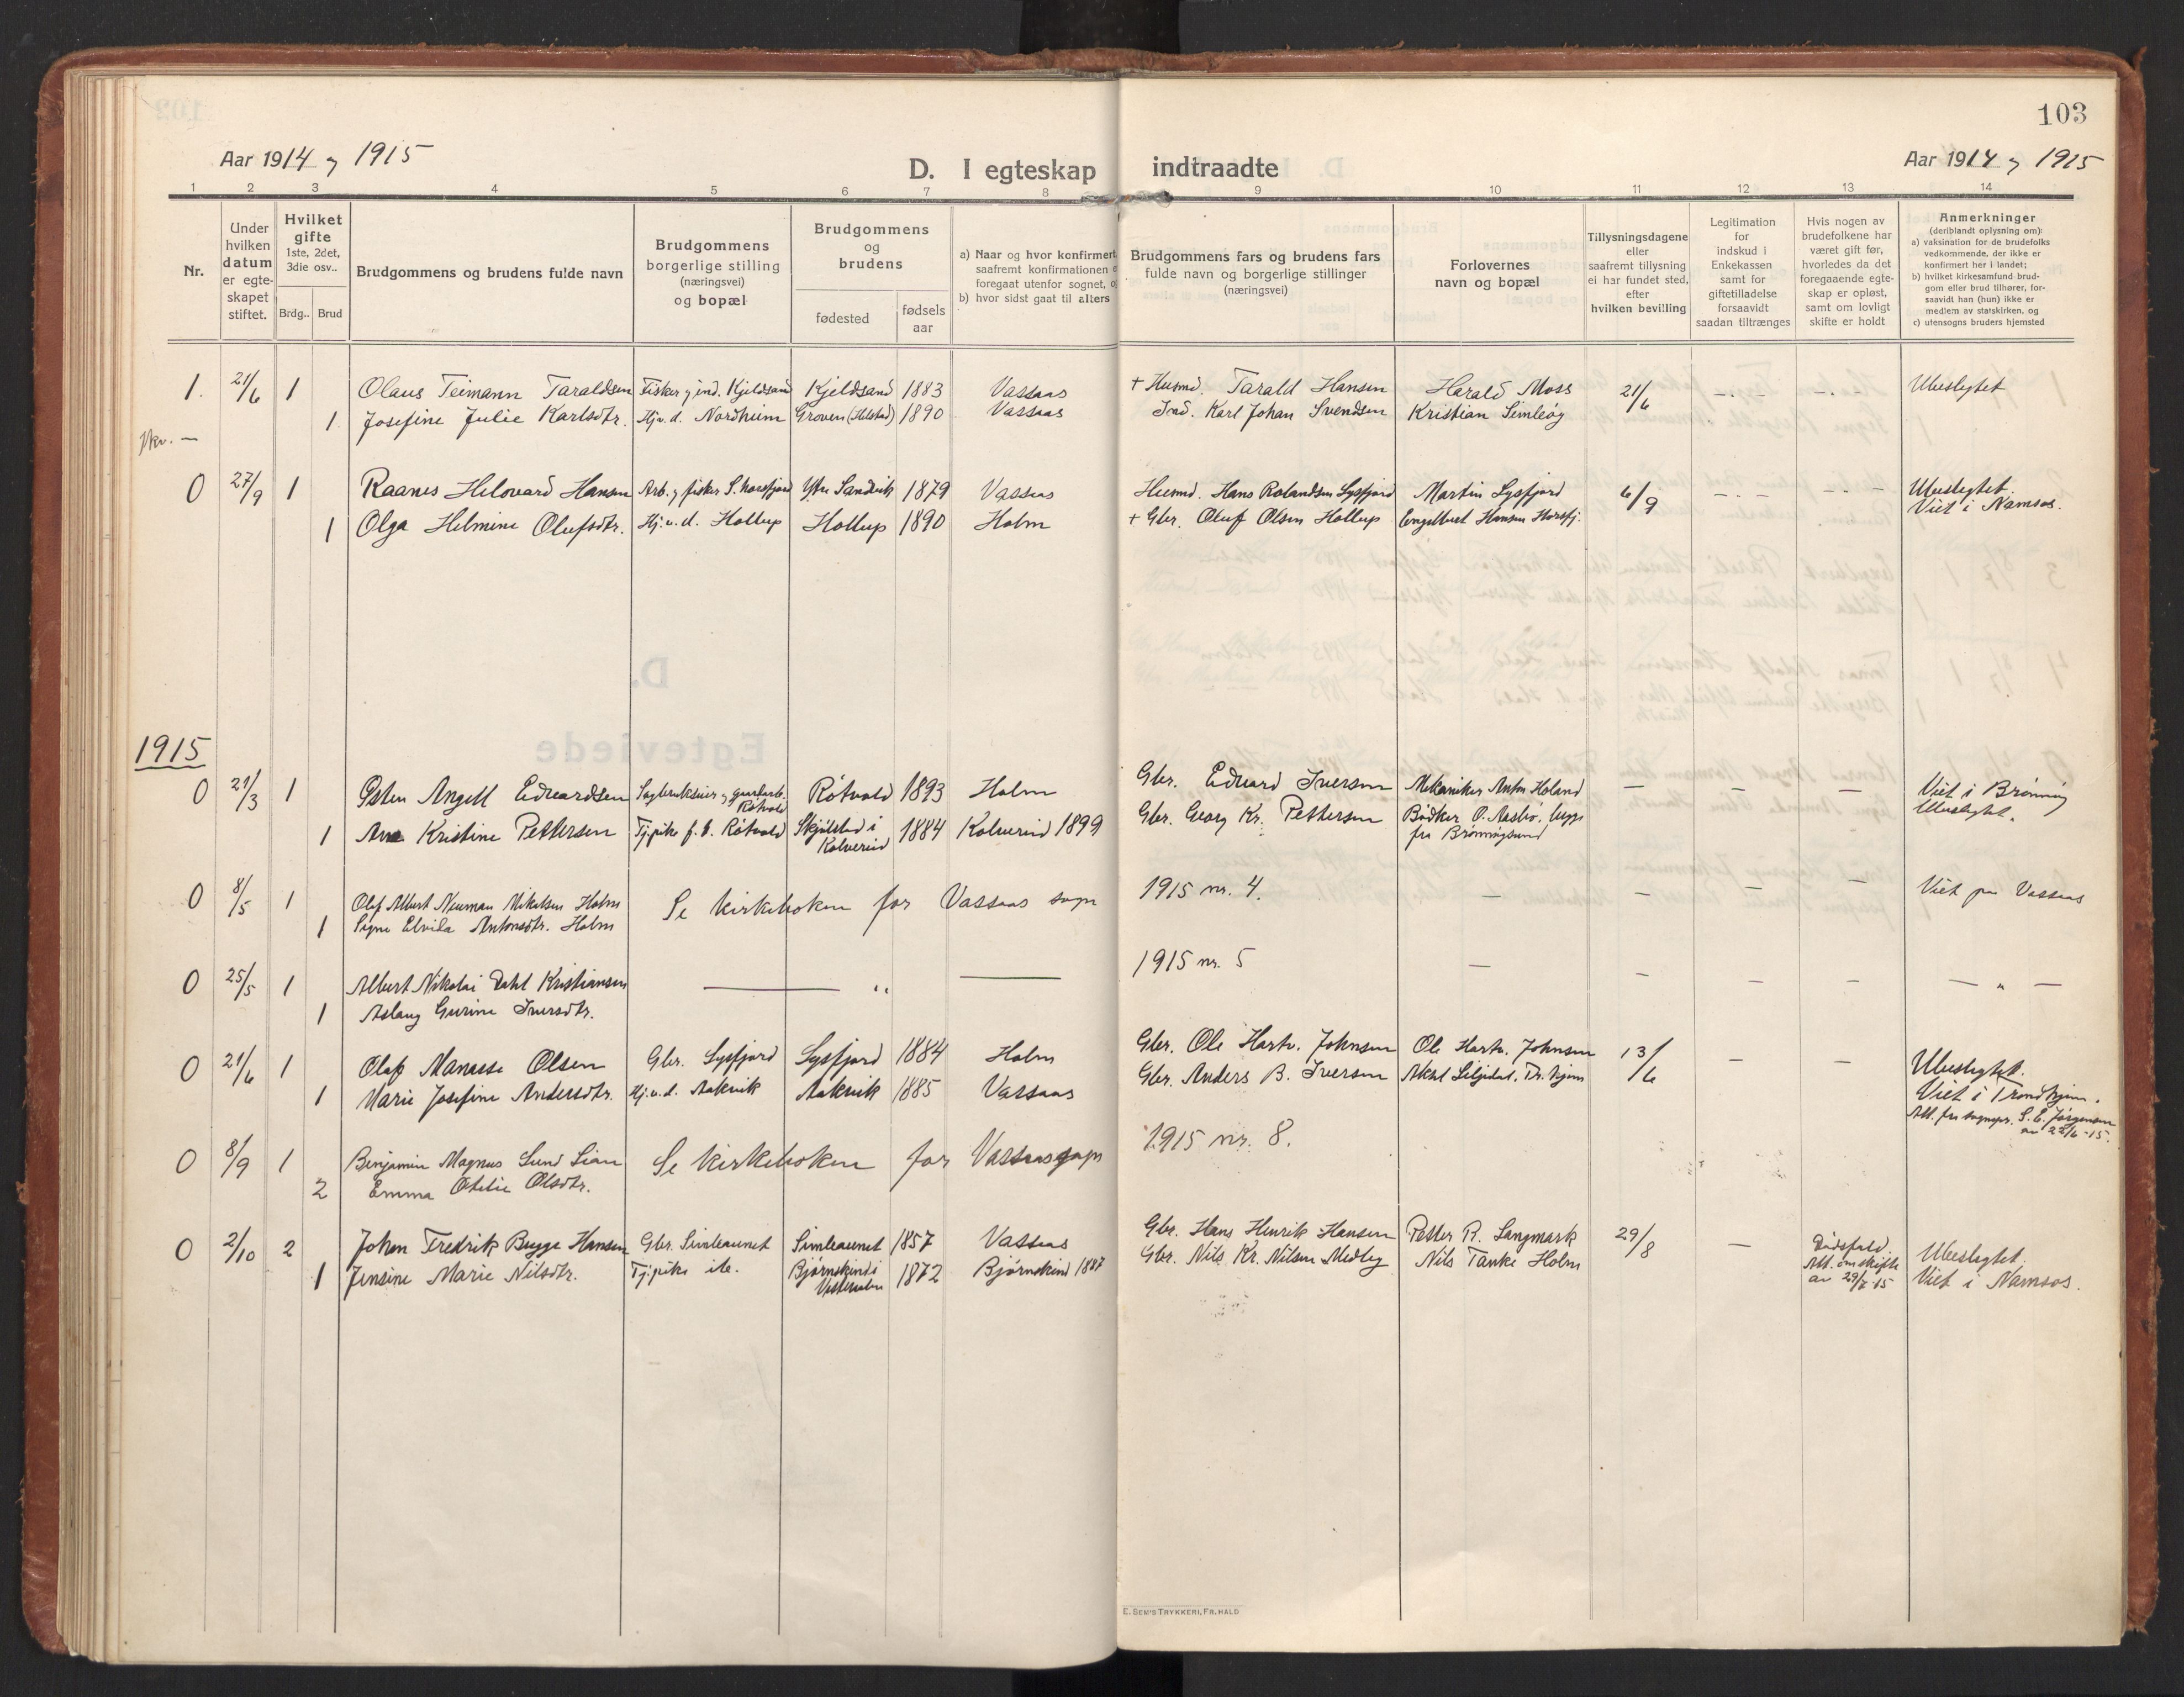 103
Aar 1914 og 1915
D. I egteskap indtraadte
Aar 1914 og 1915
1 2 3 4 5 6 7 8 9 10 11 12 13 14
Nr.
Under hvilken datum er egteskapet stiftet.
Hvilket gifte 1ste, 2det, 3die osv..
Brdg.. Brud
Brudgommens og brudens fulde navn
Brudgommens borgerlige stilling (næringsvei) og bopæl
Brudgommens og brudens
fødested
fødsels aar
a) Naar og hvor konfirmert
saafremt konfirmationen
foregaat utenfor sognet,
b) hvor sidst gaat til alters
Brudgommens fars og brudens fars
fulde navn og borgerlige stillinger
(næringsvei)
Forlovernes
navn og bopæl
Tillysningsdagene
eller
saafremt tillysning
ei har fundet sted,
efter
hvilken bevilling
Legitimation
for
indskud i
Enkekassen
samt for
giftetilladelse
forsaavidt
saadan tiltrænges
Hvis nogen av
brudefolkene har
været gift før,
hvorledes da det
foregaaende egte-
skap er opløst,
samt om lovligt
skifte er holdt
Anmerkninger
(deriblandt oplysning om):
a) vaksination for de brudefolks
vedkommende, der ikke er
konfirmert her i landet;
b) hvilket kirkesamfund brud-
gom eller brud tilhører, for-
saavidt han (hun) ikke er
medlem av statskirken, og
c) utensogns bruders hjemsted
1. 21/6 1 Olaus Teimann Taraldsen Fisker og ind. Kjeldsand Kjeldsand 1883 Vassaas + Husmd. Tarald Hansen Harald Moss 21/6 —.— —.— Ubeslegtet
1 Josefine Julie Karlsdtr. Hj.v.d. Nordheim Groven (Helstad) 1890 Vassaas Ind. Karl Johan Svendsen Kristian Simleøg
0 27/9 1 Raanes Hilovard Hansen Arb. og fisker S. Horsfjord Ytre Sandvik 1879 Vassaas Husmd. Hans Rolandsen Lysfjord Martin Lysfjord 6/9 —.— —.— Ubeslegtet.
Viet i Namsos.
1 Olga Helmine Olufsdtr. Hj.v.d. Hollup Hollup 1890 Holm + Gbr. Oluf Olsen Hollup Engelbert Hansen Horsfj.
1915
0 21/3 1 Østen Angell Edvardsen Sagbruksseier og gaardarb. Røtvold Røtvold 1893 Holm Gbr. Edvard Iversen Mekaniker Anton Holand — — — Viet i Brønnøy
Ubeslegtet.
1 Ane Kristine Pettersen Tj.pike f.t. Røtvold Skjølstad i Kolvereid 1884 Kolvereid 1899 Gbr. Georg Kr. Pettersen Bødker O. Aasbø, begge
fra Brønnøysund
0 8/5 1 Olaf Albert Neuman Nikolsen Holm Se kirkeboken for Vassaas sogn 1915 nr. 4. — — — — Viet paa Vassaas
1 Signe Elvila Antonsdtr. Holm
0 25/5 1 Albert Nikolai Dahl Kristiansen — " — 1915 nr. 5 — — — — — " —
1 Aslaug Gurine Iversdtr.
0 21/6 1 Olaf Manasse Olsen Gbr. Lysfjord Lysfjord 1884 Holm Gbr. Ole Hartv. Johnsen Ole Hartv. Johnsen 13/6 — — Ubeslegtet.
1 Marie Josefine Andersdtr. Hj.v.d. Aakvik Aakvik 1885 Vassaas Gbr. Anders B. Iversen Aksel Liljedal, Tr.hjem Viet i Trondhjem.
Att. fra sognepr. S. E. Jørgensen
av 22/6-15.
0 8/9 1 Benjamin Magnus Lund Lian Se kirkeboken for Vassaas sogn 1915 nr. 8.
2 Emma Otelie Olsdtr.
0 2/10 2 Johan Fredrik Bugge Hansen Gbr. Simleaunet Simleaunet 1857 Vassaas Gbr. Hans Henrik Hansen Petter R. Langmark 29/8 — Dødsfald.
Att. om skifte
av 29/7 15 Ubeslegtet.
Viet i Namsos.
1 Jensine Marie Nilsdtr. Tj.pike ib. Bjørnskind i Vesteraalen 1872 Bjørnskind 1887 Gbr. Nils Kr. Nilsen Medby Nils Tanke Holm
E. SEM'S TRYKKERI, FR.HALD